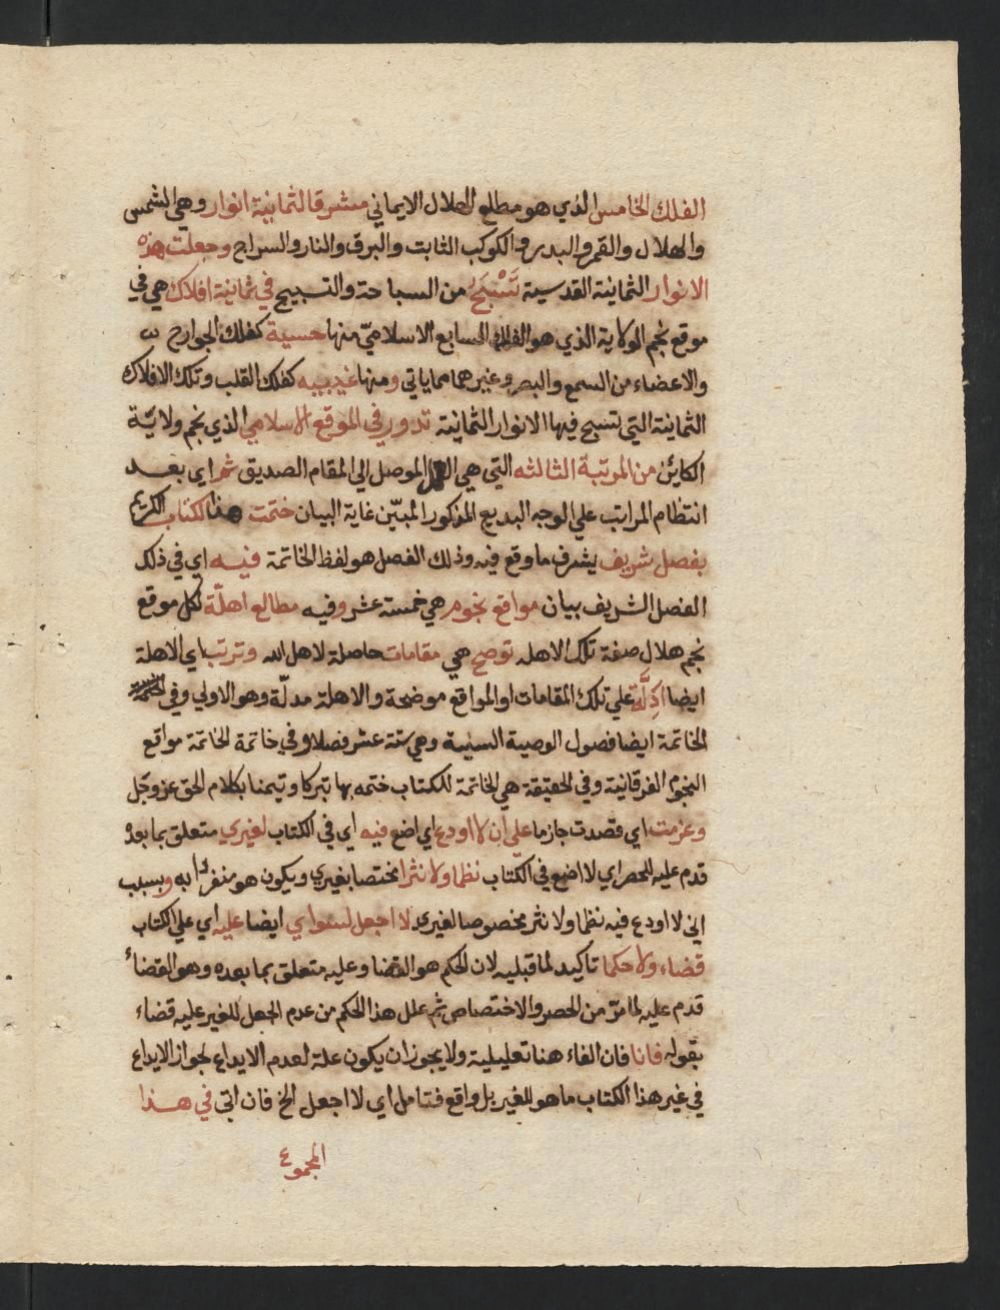 الفلك الخامس الذي هو مطلع الهلال الايماني مشرقا لثمانية انوار وهي الشمس
والهلال والقمر والبدر والكوكب الثابت والبرق والنار والسراج وجعلت هذه
الانوار الثمانية القدسية تَسْبَحُ من السباحة والتسبيح في ثمانية افلاك هي في
موقع نجم الولاية الذي هو الفلك السابع الاسلاميّ منها حسية كفلك الجوارح
والاعضاء من السمع والبصر وغيرهما مما ياتي ومنها غيبيه كفلك القلب وتلك الافلاك
الثمانية التي تسبح فيها الانوار الثمانية تدور في الموقع الاسلامي الذي نجم ولايّة
الكاين من المرتبة الثالثه التي هي الموصل الي المقام الصديق ثم اي بعد
انتظام المراتب علي الوجه البديع المذكور المبيّن غاية البيان ختمت هذا الكتاب الكريم
بفصل شريف يشرف ما وقع فيه وذلك الفصل هو لفظ الخاتمة فيه اي في ذلك
الفصل الشريف بيان مواقع نجوم هي خمسة عشر وفيه مطالع اهلّة لكل موقع
نجم هلال صفة تلك الاهله توضح هي مقامات حاصلة لاهل الله وترتب اي الاهلة
ايضا ادِلَّة علي تلك المقامات او المواقع موضحة والاهلة مدلّة وهو الاولي وفي
الخاتمة ايضا فصول الوصية السنية وهي ستة عشر فصلا وفي خاتمة الخاتمة مواقع
النجوم الفرقانية وفي الحقيقة هي الخاتمة للكتاب ختمه بها تبركا وتيمنا بكلام الحق عز وجل
وعزمت اي قصدت جازما علي ان لا اودع اي اضع فيه اي في الكتاب لغيري متعلق بما بعده
قدم عليه للحصر اي لا اضع في الكتاب نظما ولا نثرا مختصا بغيري ويكون هو منفردا به وبسبب
اني لا اودع فيه نظما ولا نثر مخصوصا لغيري لا اجعل لسواي ايضا عليه اي علي الكتاب
قضاء ولا حكما تاكيد لما قبليه لان الحكم هو القضا وعليه متعلق بما بعده وهو القضاء
قدم عليه لما مرّ من الحصر والاختصاص ثم علل هذا الحكم من عدم الجعل للغير عليه قضاء
بقوله فانا فان الفاء هنا تعليلية ولا يجوز ان يكون علة لعدم الايداع لجواز الايداع
في غير هذا الكتاب ما هو للغير بل واقع فتامل اي لا اجعل الخ فان اتي في هذا
المجموع